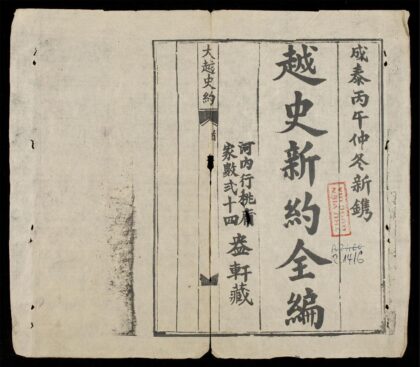 成泰丙午仲冬新鐫
越史新約全編
河內行桃
家數弍十四
盎軒藏
大越史約
1416